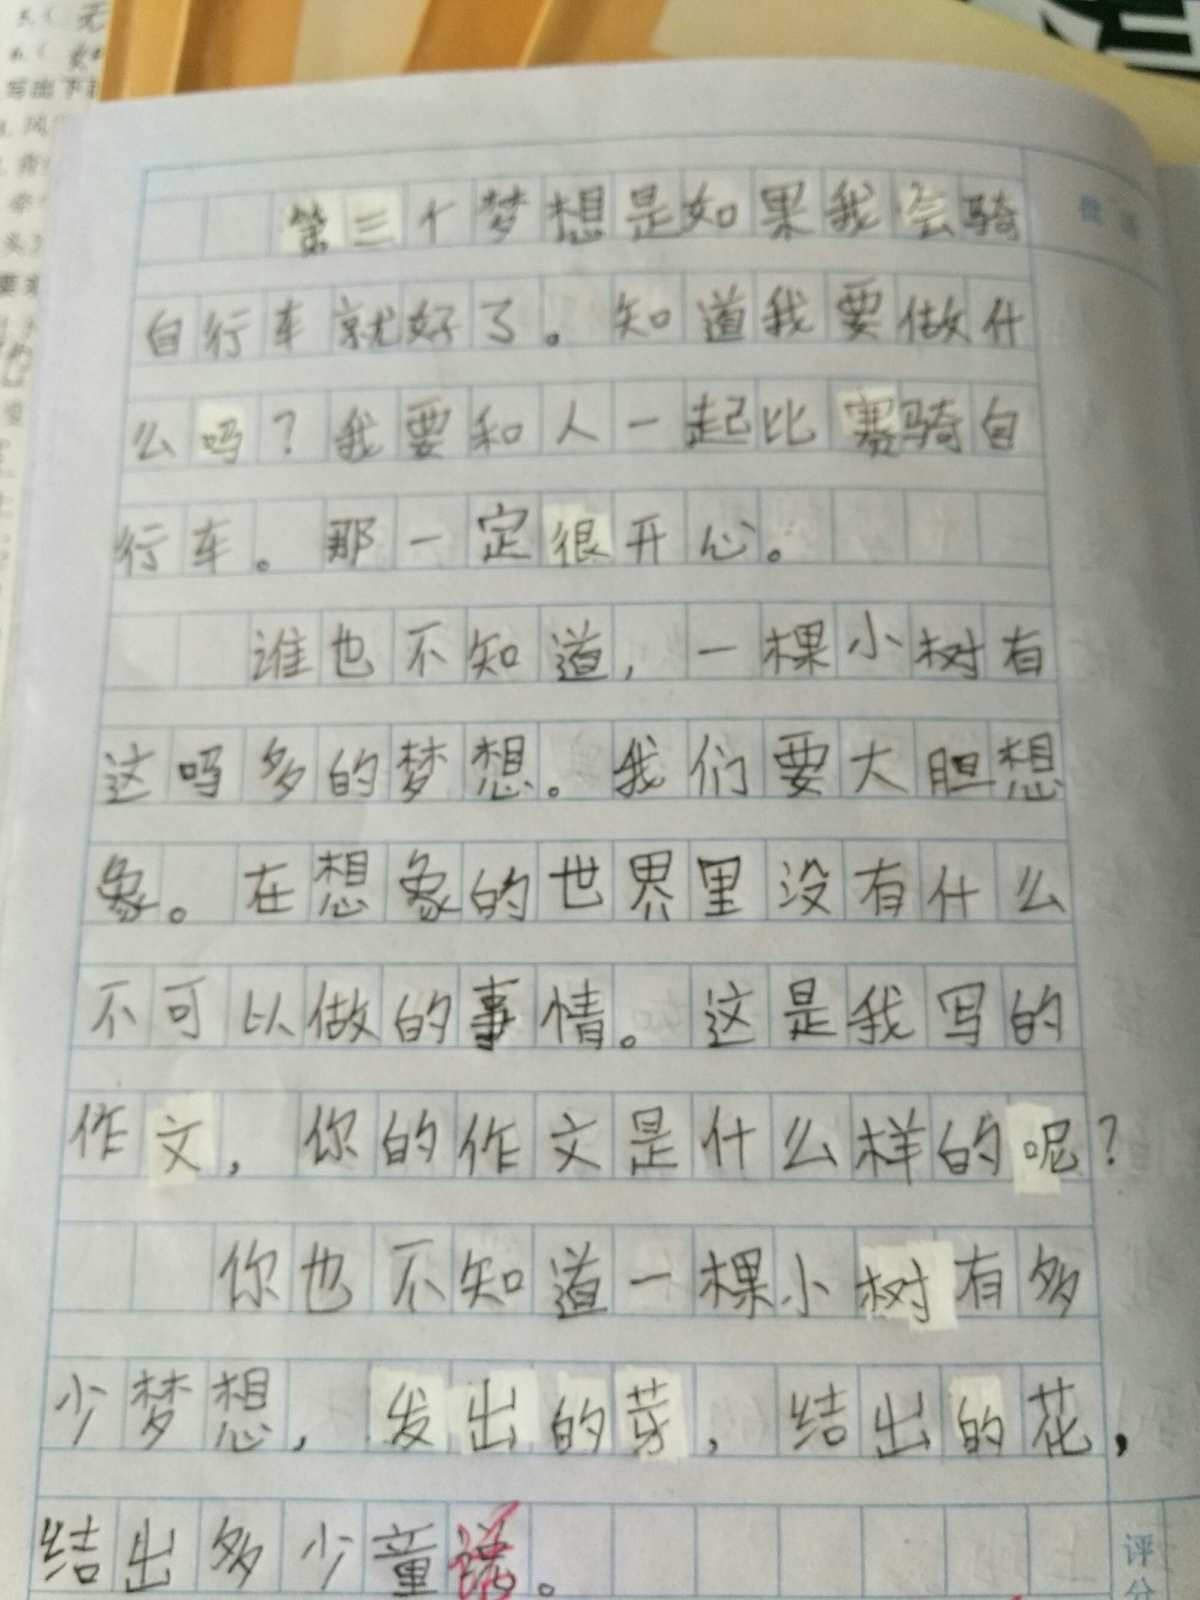 3.( 无
4.( 如
写出下
第三个梦想是如果我会骑
自行车就好了。知道我要做什
么吗？我要和人一起比赛骑自
行车。那一定很开心。
谁也不知道，一棵小树有
这吗多的梦想。我们要大胆想
象。在想象的世界里没有什么
不可以做的事情。这是我写的
作文，你的作文是什么样的呢？
你也不知道一棵小树有多
少梦想，发出的芽，结出的花，
结出多少童话。
评
分